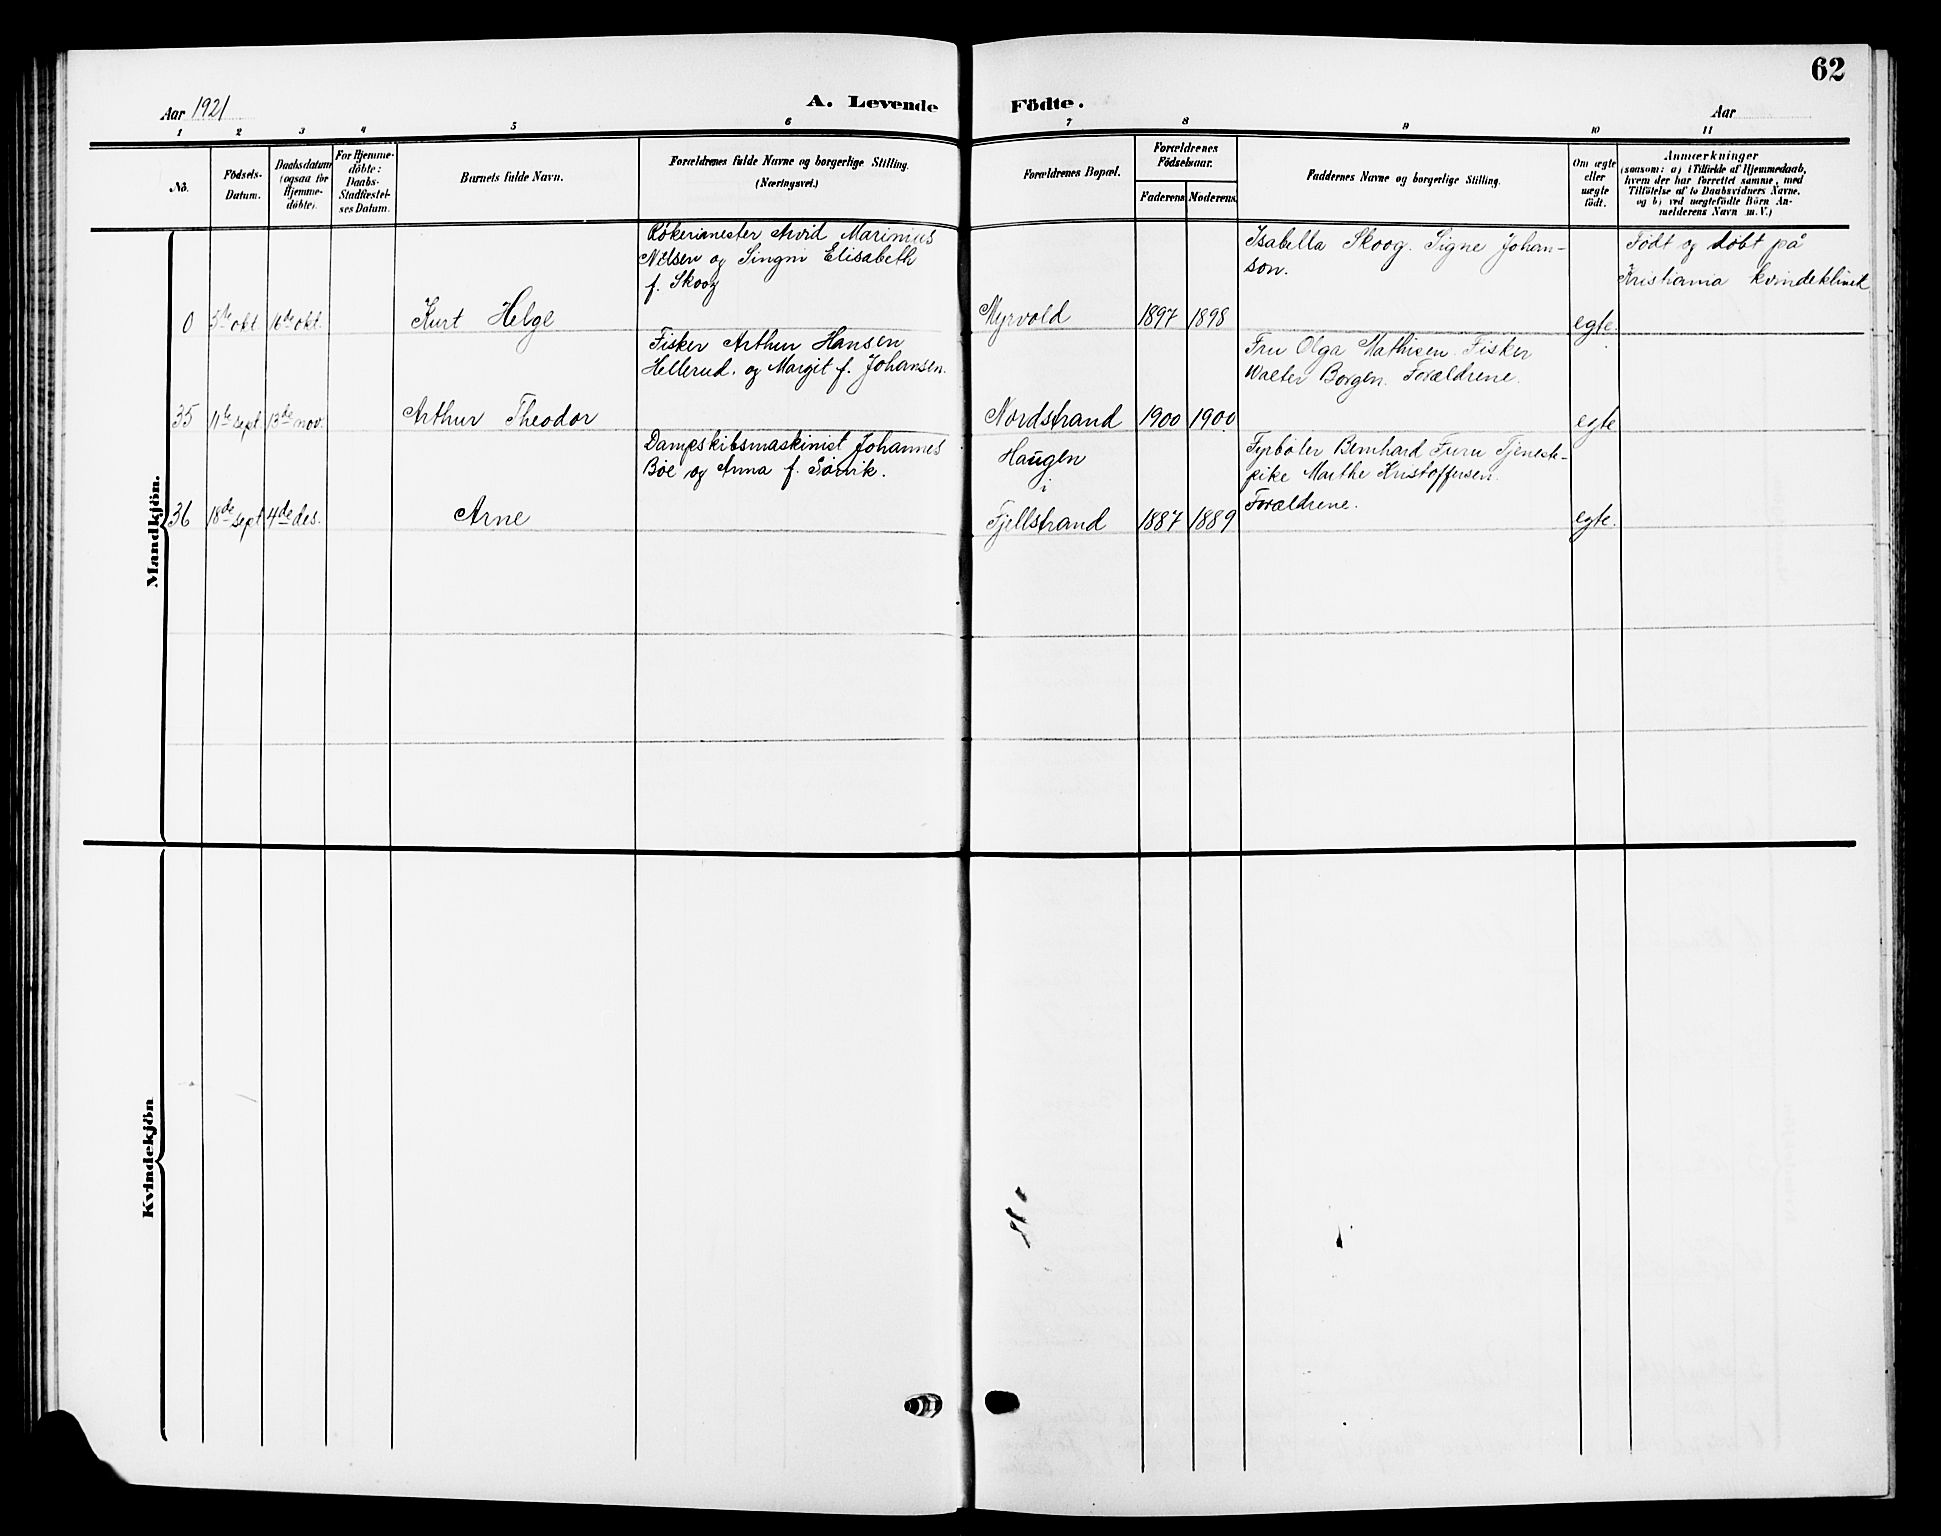 62
Aar 1921
A. Levende Födte.
Aar
1 2 3 4 5 6 7 8 9 10 11
No.
Födsels-
Datum.
Daabsdatum
(ogsaa for
Hjemme-
döbte).
For Hjemme-
döbte:
Daabs-
Stadfæstel-
ses Datum.
Barnets fulde Navn.
Forældrenes fulde Navne og borgerlige Stilling.
(Næringsvei.)
Forældrenes Bopæl.
Forældrenes
Födselsaar.
Faderens Moderens
Faddernes Navne og borgerlige Stilling.
Om ægte
eller
uægte
födt.
Anmærkninger
(saasom: a) i Tilfælde af Hjemmedaab,
hvem der har forrettet samme, med
Tilföielse af to Daabsvidners Navne.
og b) ved uægtefödte Börn An-
melderens Navn m. V.)
Mandkjön.
0 5te okt. 16de okt.
Kurt Helge
Røkerimester Arvid Marinius
Nilsen og Singni Elisabeth
f. Skoog
Myrvold
1897 1898
Isabella Skoog. Signe Johan-
son.
egte.
Født og døbt på
Kristiania kvindeklinik
35 11te sept. 13de nov.
Arthur Theodor
Fisker Arthur Hansen
Hellerud. og Margit f. Johansen.
Nordstrand
1900 1900
Fru Olga Mathisen. Fisker
Walter Borgen. Forældrene.
egte
36 18de sept 4de des.
Arne
Dampskibsmaskinist Johannes
Bøe og Anna f.
Haugen
i
Fjellstrand
1887 1889
Fyrbøter Bernhard Furu Tjeneste-
pike Marthe Kristoffersen.
Forældrene.
egte.
Kvindekjön